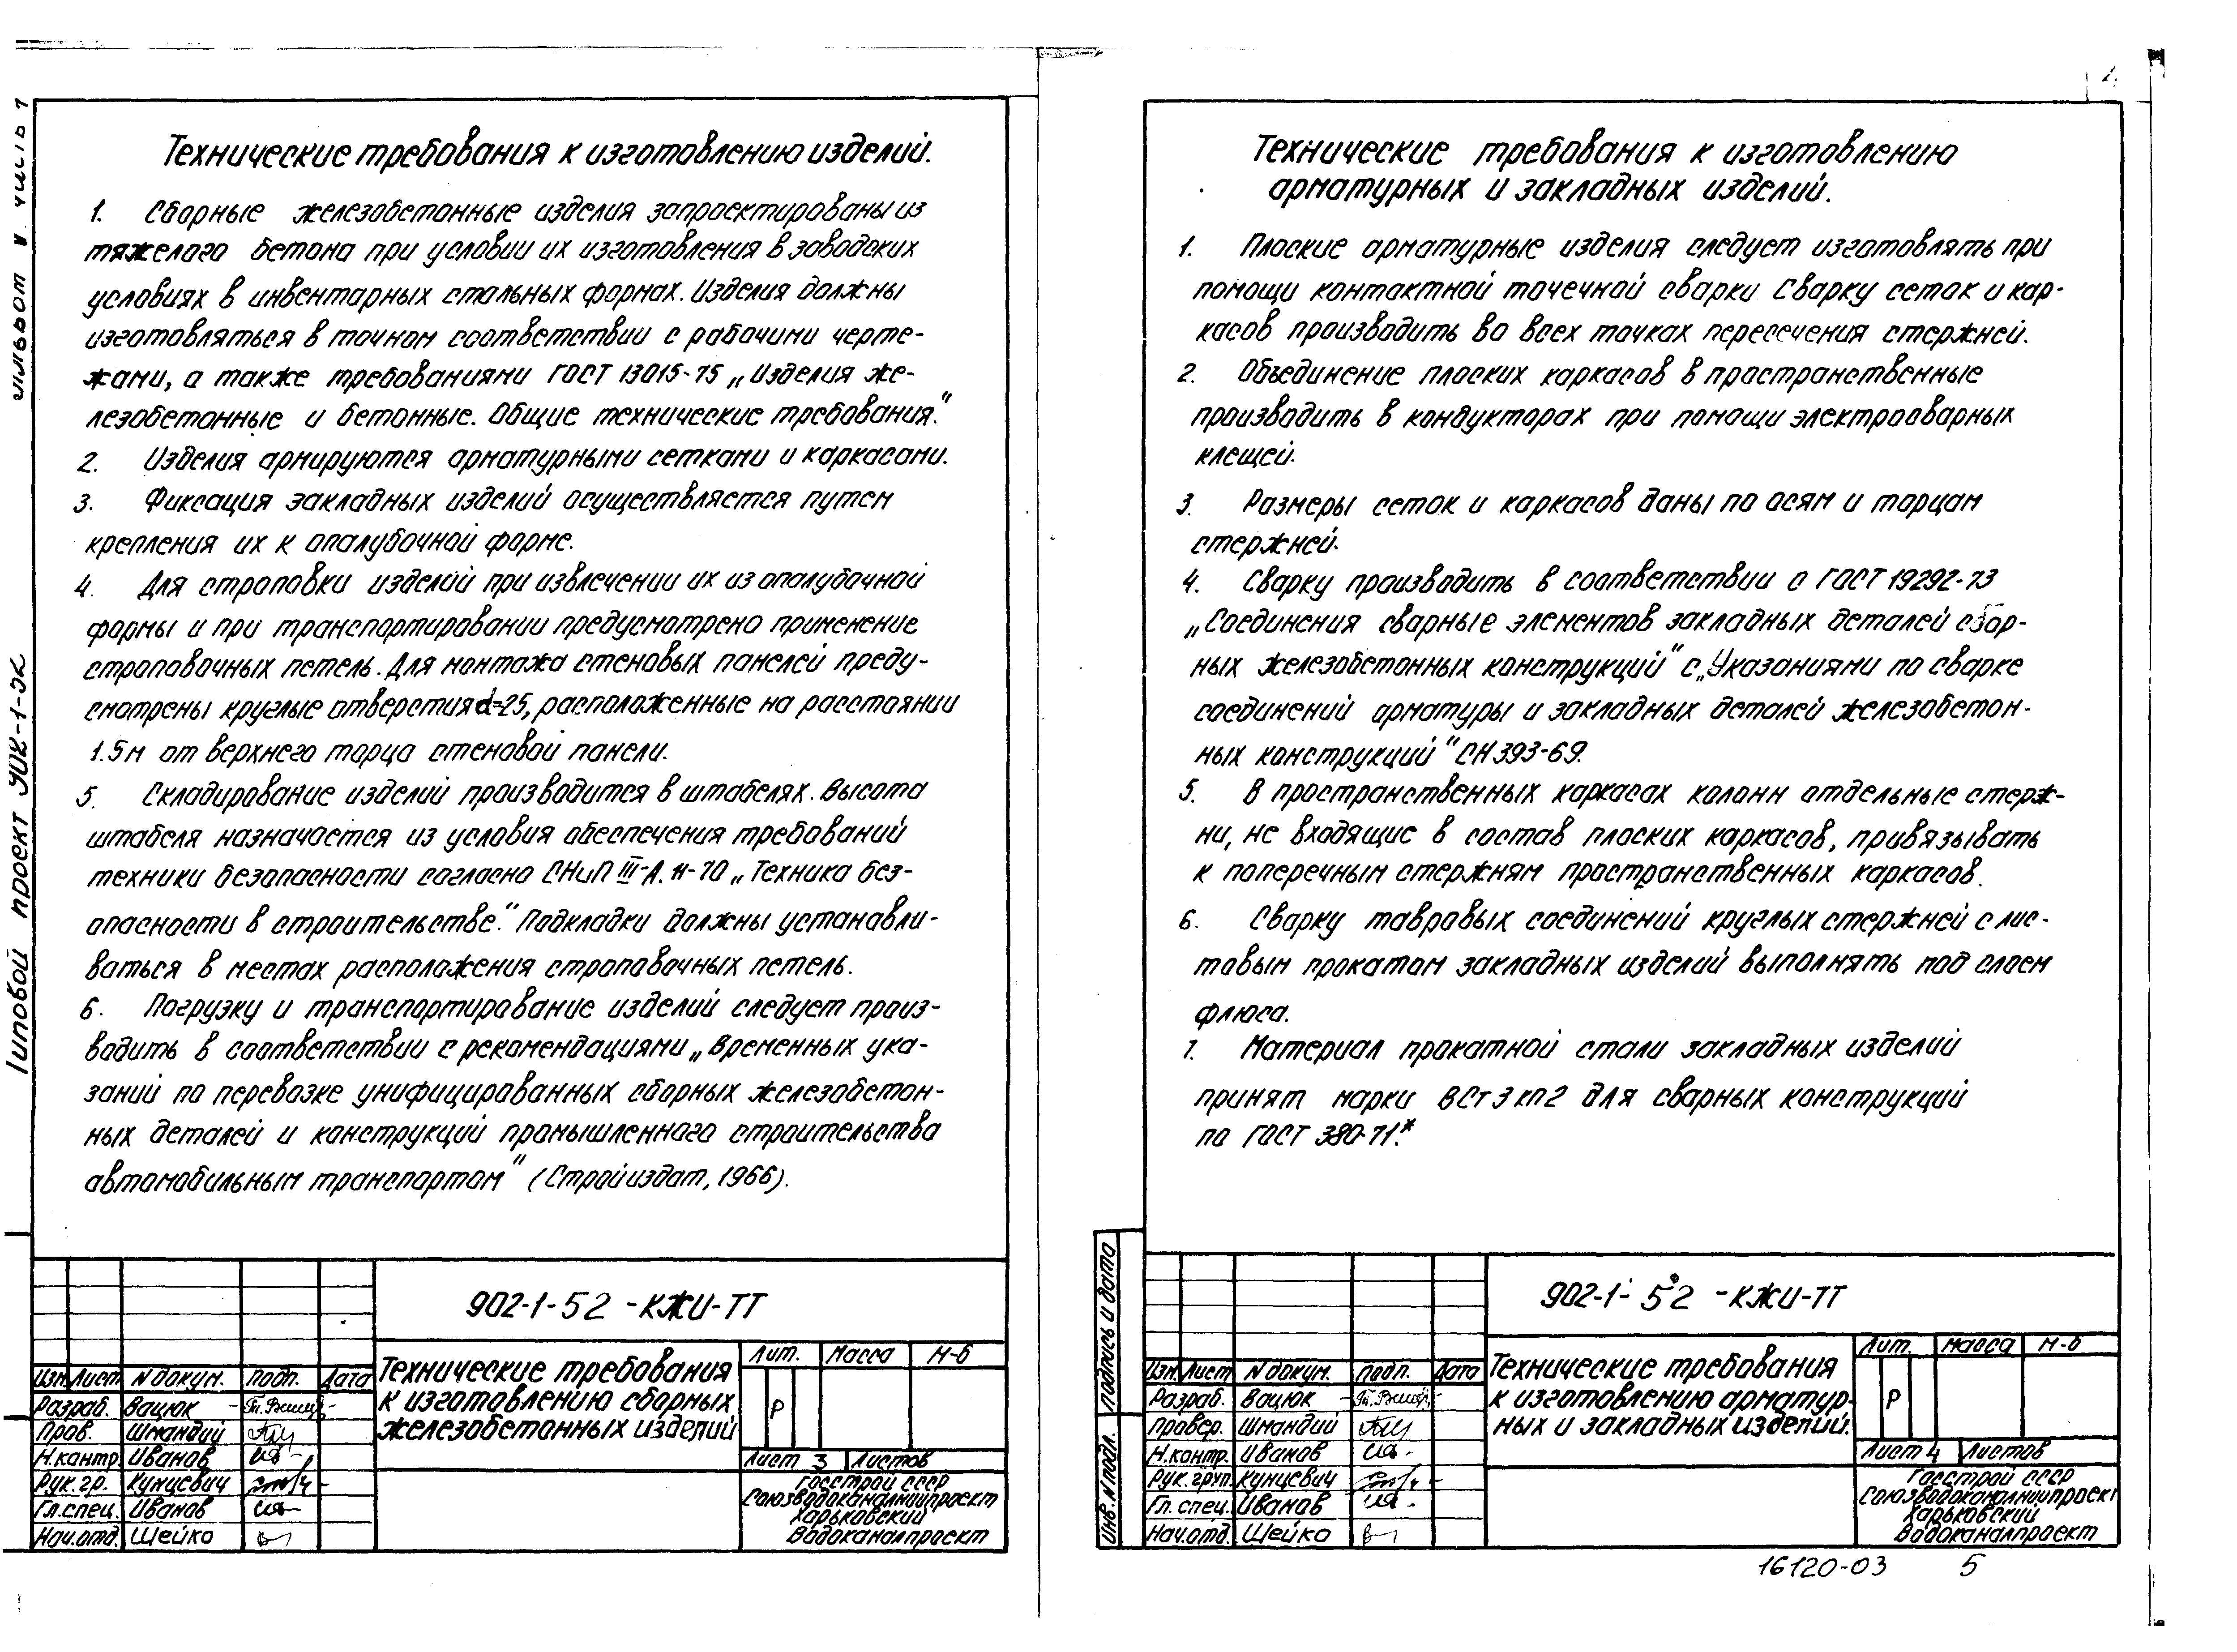 Технические требования к изготовлению изделий.
1. Сборные железобетонные изделия запроектированы из
тяжелого бетона при условии их изготовления в заводских
условиях в инвентарных стальных формах. Изделия должны
изготовляться в точном соответствии с рабочими черте-
жами, а также требованиями ГОСТ 13015-75 „Изделия же-
лезобетонные и бетонные. Общие технические требования."
2. Изделия армируются арматурными сетками и каркасами.
3. Фиксация закладных изделий осуществляется путем
крепления их к опалубочной форме.
4. Для строповки изделий при извлечении их из опалубочной
формы и при транспортировании предусмотрено применение
строповочных петель. Для монтажа стеновых панелей преду-
смотрены круглые отверстия d=25, расположенные на расстоянии
1.5м от верхнего торца стеновой панели.
5. Складирование изделий производится в штабелях. Высота
штабеля назначается из условия обеспечения требований
техники безопасности согласно СНиП III-А. 11-70 „Техника без-
опасности в строительстве." Подкладки должны устанавли-
ваться в местах расположения строповочных петель.
6. Погрузку и транспортирование изделий следует произ-
водить в соответствии с рекомендациями „Временных ука-
заний по перевозке унифицированных сборных железобетон-
ных деталей и конструкций промышленного строительства
автомобильным транспортом" (Стройиздат, 1966).
902-1-52 -КЖИ-ТТ
Технические требования
к изготовлению сборных
железобетонных изделий
Лит. Масса М-б
Р
Лист 3 Листов
Госстрой СССР
Союзводоканалниипроект
Харьковский
Водоканалпроект
Изм. Лист N докум. Подп. Дата
Разраб. Вацюк
Пров. Шмандий
Н.контр. Иванов
Рук. гр. Кунцевич
Гл.спец. Иванов
Нач.отд. Шейко
Типовой проект
Технические требования к изготовлению
арматурных и закладных изделий.
1. Плоские арматурные изделия следует изготовлять при
помощи контактной точечной сварки. Сварку сеток и кар-
касов производить во всех точках пересечения стержней.
2. Объединение плоских каркасов в пространственные
производить в кондукторах при помощи электросварных
клещей.
3. Размеры сеток и каркасов даны по осям и торцам
стержней.
4. Сварку производить в соответствии с ГОСТ 19292-73
„Соединения сварные элементов закладных деталей сбор-
ных железобетонных конструкций" с „Указаниями по сварке
соединений арматуры и закладных деталей железобетон-
ных конструкций" СН 393-69.
5. В пространственных каркасах колонн отдельные стерж-
ни, не входящие в состав плоских каркасов, привязывать
к поперечным стержням пространственных каркасов.
6. Сварку тавровых соединений круглых стержней с лис-
товым прокатом закладных изделий выполнять под слоем
флюса.
7. Материал прокатной стали закладных изделий
принят марки ВСт3кп2 для сварных конструкций
по ГОСТ 380-71.*
902-1-52 -КЖИ-ТТ
Технические требования
к изготовлению арматур-
ных и закладных изделий.
Лит. Масса М-б
Р
Лист 4 Листов
Госстрой СССР
Союзводоканалниипроект
Харьковский
Водоканалпроект
Изм. Лист N докум. Подп. Дата
Разраб. Вацюк
Провер. Шмандий
Н.контр. Иванов
Рук. груп. Кунцевич
Гл. спец. Иванов
Нач.отд. Шейко
Инв. N подл. Подпись и дата
16120-03 5